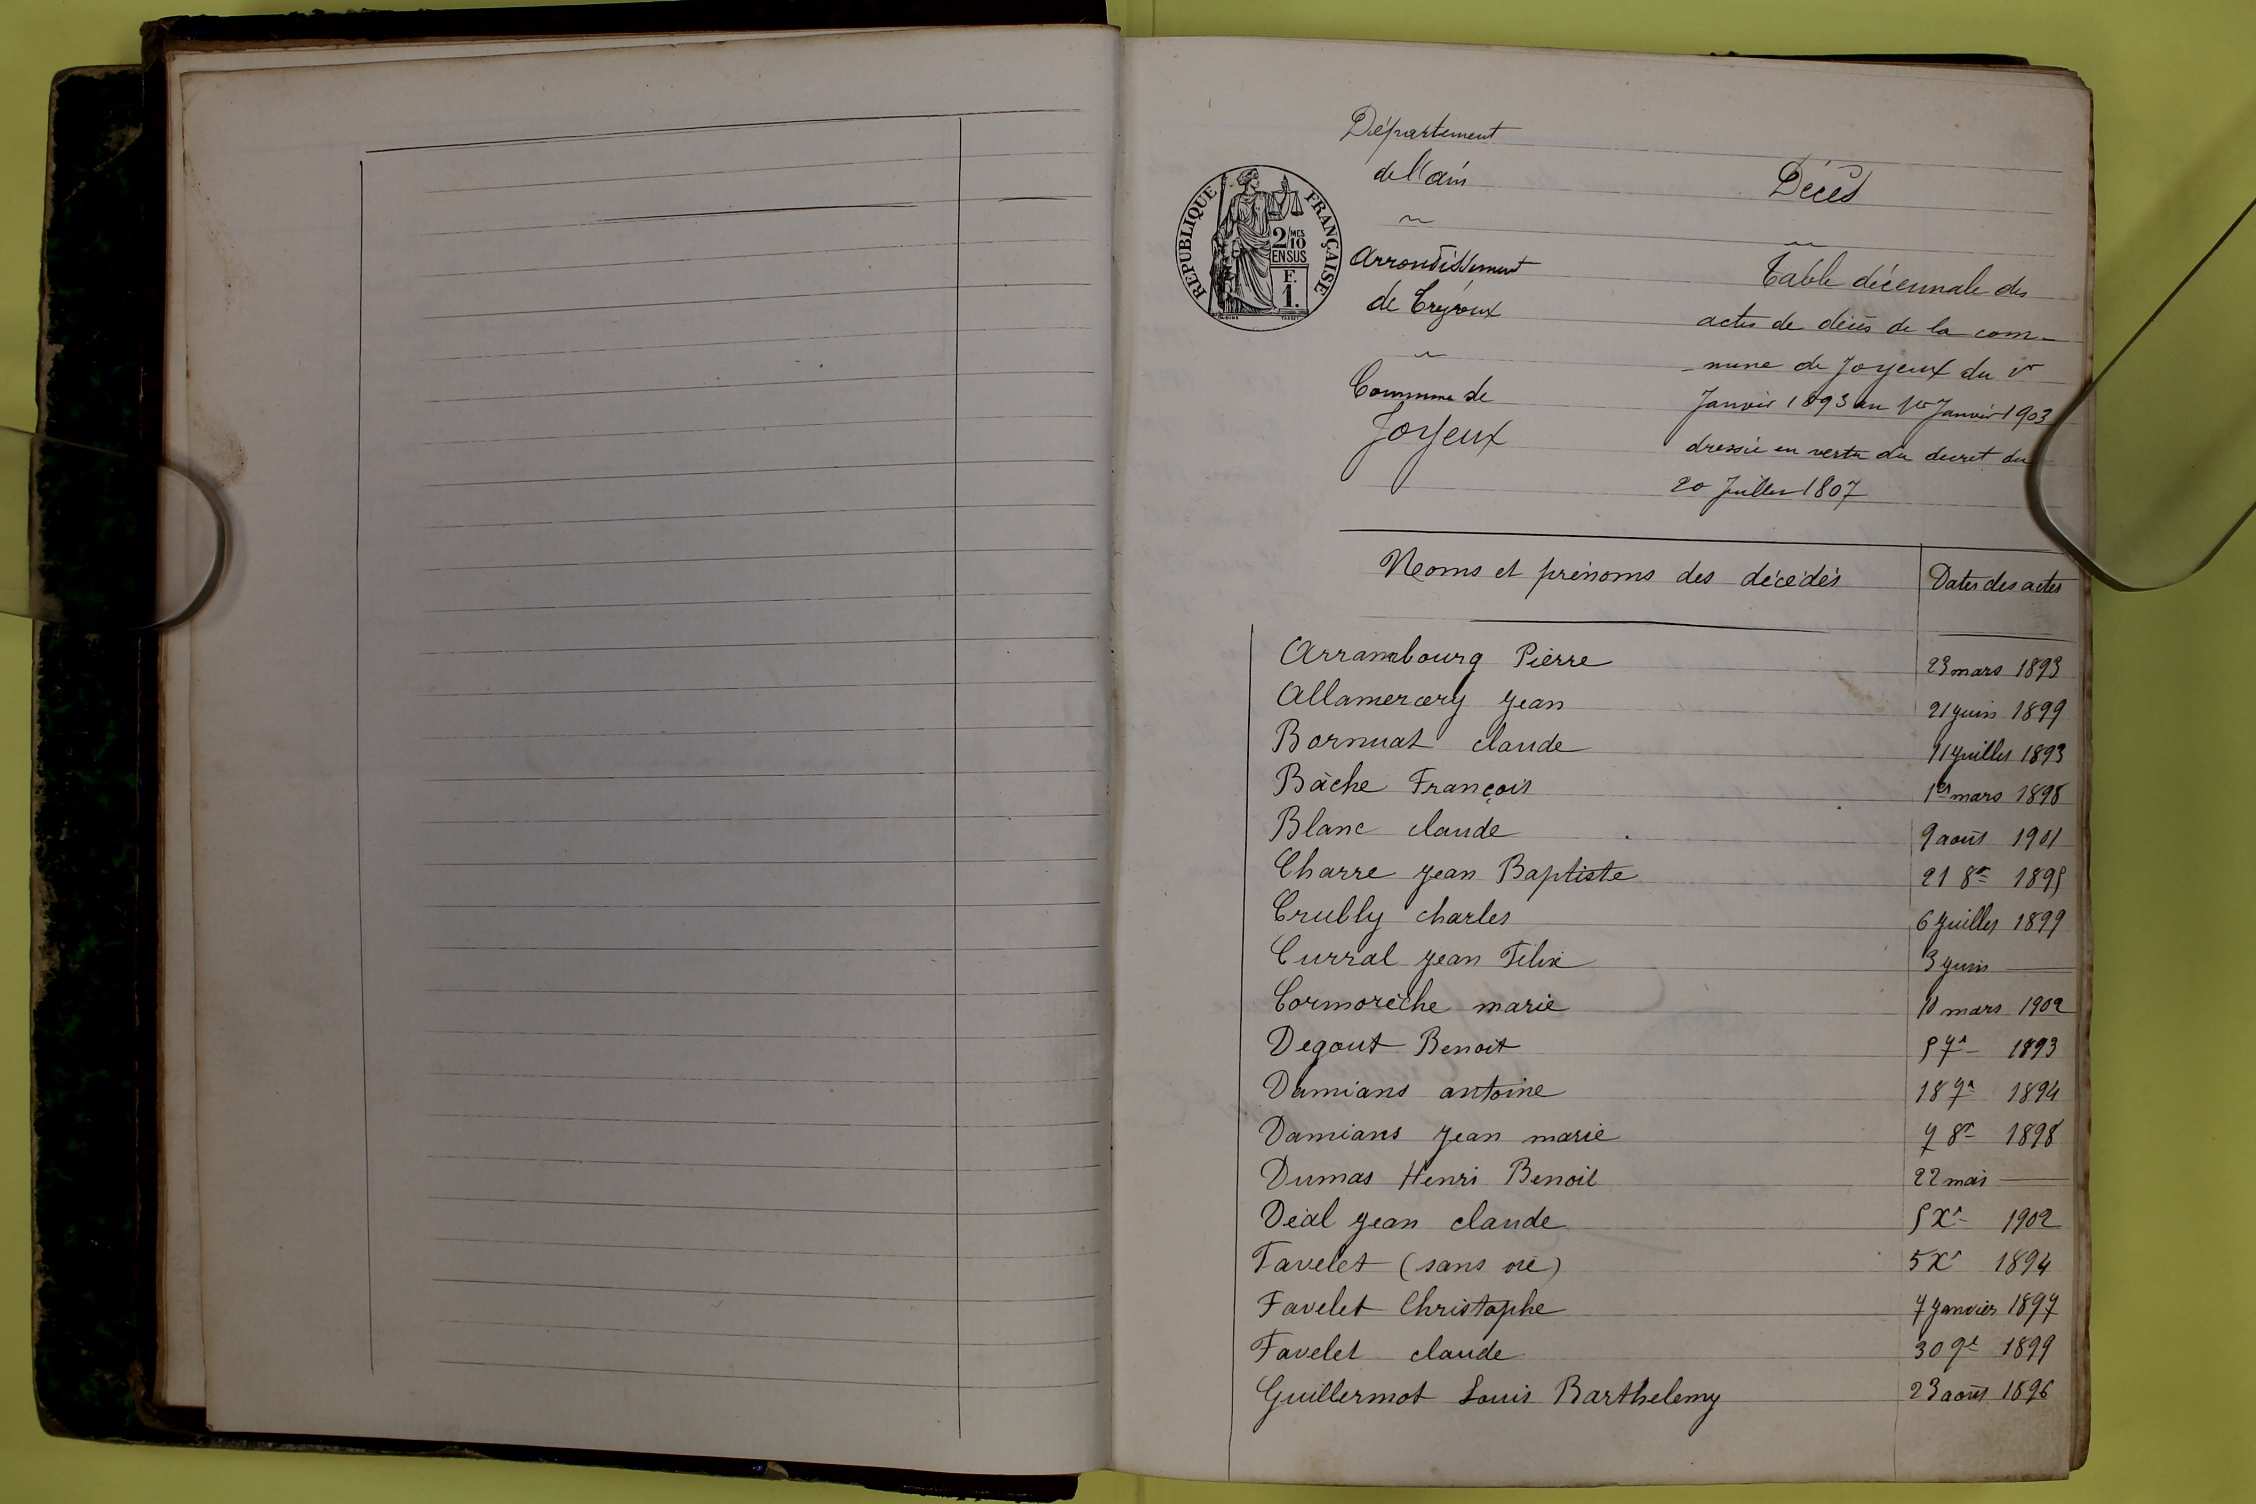 Département
de l'ain
Arrondissement
de Trévoux
Commune de
Joyeux
REPUBLIQUE FRANÇAISE
2/10 MES
EN SUS
F.
1.
Décès
Table décennale des
actes de décès de la com-
-mune de Joyeux du 1er
Janvier 1893 au 1er Janvier 1903
dressée en vertu du decret du
20 Juillet 1807
Noms et prénoms des décédés Dates des actes
Arrambourg Pierre 23 mars 1893
Allamercery Jean 21 juin 1899
Bornuat claude 11 juillet 1893
Bâche François 1er mars 1898
Blanc claude 9 août 1901
Charre Jean Baptiste 21 8re 1895
Crubly charles 6 juillet 1899
Curral Jean Félix 3 juin —
Cormorèche marie 10 mars 1902
Degout Benoit 5 7re 1893
Damians antoine 18 7re 1894
Damians Jean marie 7 8re 1898
Dumas Henri Benoit 22 mai —
Déal Jean claude 5 Xre 1902
Favelet (sans vie) 5 Xre 1894
Favelet Christophe 7 janvier 1897
Favelet claude 30 9re 1899
Guillermot Louis Barthelemy 23 août 1896